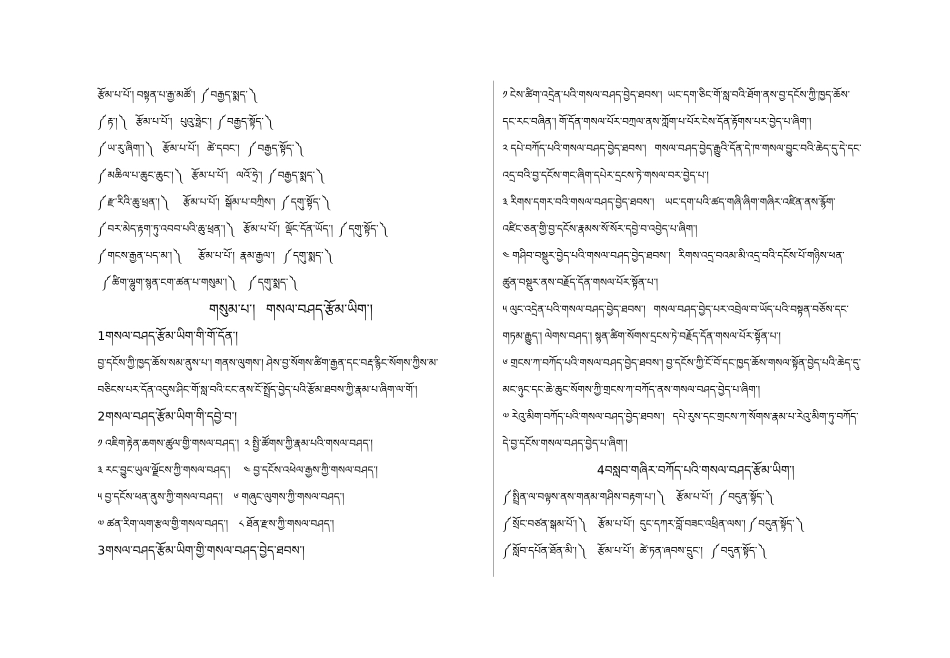 རྩོམ་པ་པོ། བསྟན་པ་རྒྱ་མཚོ། ༼བརྒྱད་སྨད་༽
༼རྟ།༽ རྩོམ་པ་པོ། པུའུ་ཧྥེང་། ༼བརྒྱད་སྟོད་༽
༼ཡ་རུ་ཞིག།༽ རྩོམ་པ་པོ། ཚེ་དབང་། ༼བརྒྱད་སྟོད་༽
༼མཆིལ་པ་ཆུང་ཆུང་།༽ རྩོམ་པ་པོ། ལའོ་ཧྲེ། ༼བརྒྱད་སྨད་༽
༼རྫ་རིའི་ཆུ་ཕྲན།༽ རྩོམ་པ་པོ། སྒོམ་པ་བཀྲིས། ༼དགུ་སྟོད་༽
༼བར་མེད་རྟག་ཏུ་འབབ་པའི་ཆུ་ཕྲན།༽ རྩོམ་པ་པོ། ལྗོང་དོན་ཡོད། ༼དགུ་སྟོད་༽
༼གངས་རྒྱན་པད་མ།༽ རྩོམ་པ་པོ། རྣམ་རྒྱལ། ༼དགུ་སྨད་༽
༼ཚིག་ལྷུག་སྙན་ངག་ཚན་པ་གསུམ།༽ ༼དགུ་སྨད་༽
གསུམ་པ། གསལ་བཤད་རྩོམ་ཡིག།
1གསལ་བཤད་རྩོམ་ཡིག་གི་གོ་དོན།
བྱ་དངོས་ཀྱི་ཁྱད་ཆོས་སམ་ནུས་པ། གནས་ལུགས། ཤེས་བྱ་སོགས་ཚིག་རྒྱན་དང་བརྡ་རྙིང་སོགས་ཀྱིས་མ་
བཅིངས་པར་དོན་འདུས་ཤིང་གོ་སླ་བའི་ངང་ནས་ངོ་སྤྲོད་བྱེད་པའི་རྩོམ་ཐབས་ཀྱི་རྣམ་པ་ཞིག་ལ་གོ།
2གསལ་བཤད་རྩོམ་ཡིག་གི་དབྱེ་བ།
༡ འཇིག་རྟེན་ཆགས་ཚུལ་གྱི་གསལ་བཤད། ༢ སྤྱི་ཚོགས་ཀྱི་རྣམ་པའི་གསལ་བཤད།
༣ རང་བྱུང་ཡུལ་ལྗོངས་ཀྱི་གསལ་བཤད། ༤ བྱ་དངོས་འཕེལ་རྒྱས་ཀྱི་གསལ་བཤད།
༥ བྱ་དངོས་ཕན་ནུས་ཀྱི་གསལ་བཤད། ༦ གཞུང་ལུགས་ཀྱི་གསལ་བཤད།
༧ ཚན་རིག་ལག་རྩལ་གྱི་གསལ་བཤད། ༨ ཐོན་རྫས་ཀྱི་གསལ་བཤད།
3གསལ་བཤད་རྩོམ་ཡིག་གྱི་གསལ་བཤད་བྱེད་ཐབས།
༡ ངེས་ཚིག་འདྲེན་པའི་གསལ་བཤད་བྱེད་ཐབས། ཡང་དག་ཅིང་གོ་སླ་བའི་ཐོག་ནས་བྱ་དངོས་ཀྱི་ཁྱད་ཆོས་
དང་རང་བཞིན། གོ་དོན་གསལ་པོར་བཀྲལ་ནས་ཀློག་པ་པོར་ངེས་དོན་རྟོགས་པར་བྱེད་པ་ཞིག།
༢ དཔེ་བཀོད་པའི་གསལ་བཤད་བྱེད་ཐབས། གསལ་བཤད་བྱེད་རྒྱུའི་དོན་དེ་ཁ་གསལ་བྱུང་བའི་ཆེད་དུ་དེ་དང་
འདྲ་བའི་བྱ་དངོས་གང་ཞིག་དཔེར་དྲངས་ཏེ་གསལ་བར་བྱེད་པ།
༣ རིགས་དགར་བའི་གསལ་བཤད་བྱེད་ཐབས། ཡང་དག་པའི་ཚད་གཞི་ཞིག་གཞིར་འཛིན་ནས་རྙོག་
འཛིང་ཅན་གྱི་བྱ་དངོས་རྣམས་སོ་སོར་དབྱེ་བ་འབྱེད་པ་ཞིག།
༤ གཤིབ་བསྡུར་བྱེད་པའི་གསལ་བཤད་བྱེད་ཐབས། རིགས་འདྲ་བའམ་མི་འདྲ་བའི་དངོས་པོ་གཉིས་ཕན་
ཚུན་བསྡུར་ནས་བརྗོད་དོན་གསལ་པོར་སྟོན་པ།
༥ ལུང་འདྲེན་པའི་གསལ་བཤད་བྱེད་ཐབས། གསལ་བཤད་བྱེད་པར་འབྲེལ་བ་ཡོད་པའི་བསྟན་བཅོས་དང་
གཏམ་རྒྱུད། ལེགས་བཤད། སྙན་ཚིག་སོགས་དྲངས་ཏེ་བརྗོད་དོན་གསལ་པོར་སྟོན་པ།
༦ གྲངས་ཀ་བཀོད་པའི་གསལ་བཤད་བྱེད་ཐབས། བྱ་དངོས་ཀྱི་ངོ་བོ་དང་ཁྱད་ཆོས་གསལ་སྟོན་བྱེད་པའི་ཆེད་དུ་
མང་ཉུང་དང་ཆེ་ཆུང་སོགས་ཀྱི་གྲངས་ཀ་བཀོད་ནས་གསལ་བཤད་བྱེད་པ་ཞིག།
༧ རེའུ་མིག་བཀོད་པའི་གསལ་བཤད་བྱེད་ཐབས། དཔེ་རིས་དང་གྲངས་ཀ་སོགས་རྣམ་པ་རེའུ་མིག་ཏུ་བཀོད་
དེ་བྱ་དངོས་གསལ་བཤད་བྱེད་པ་ཞིག།
4བསླབ་གཞིར་བཀོད་པའི་གསལ་བཤད་རྩོམ་ཡིག།
༼སྤྲིན་ལ་བལྟས་ནས་གནམ་གཤིས་བརྟག་པ།༽ རྩོམ་པ་པོ། ༼བདུན་སྟོད་༽
༼སྲོང་བཙན་སྒམ་པོ།༽ རྩོམ་པ་པོ། དུང་དཀར་བློ་བཟང་འཕྲིན་ལས། ༼བདུན་སྟོད་༽
༼སློབ་དཔོན་ཐོན་མི།༽ རྩོམ་པ་པོ། ཚེ་ཏན་ཞབས་དྲུང་། ༼བདུན་སྟོད་༽